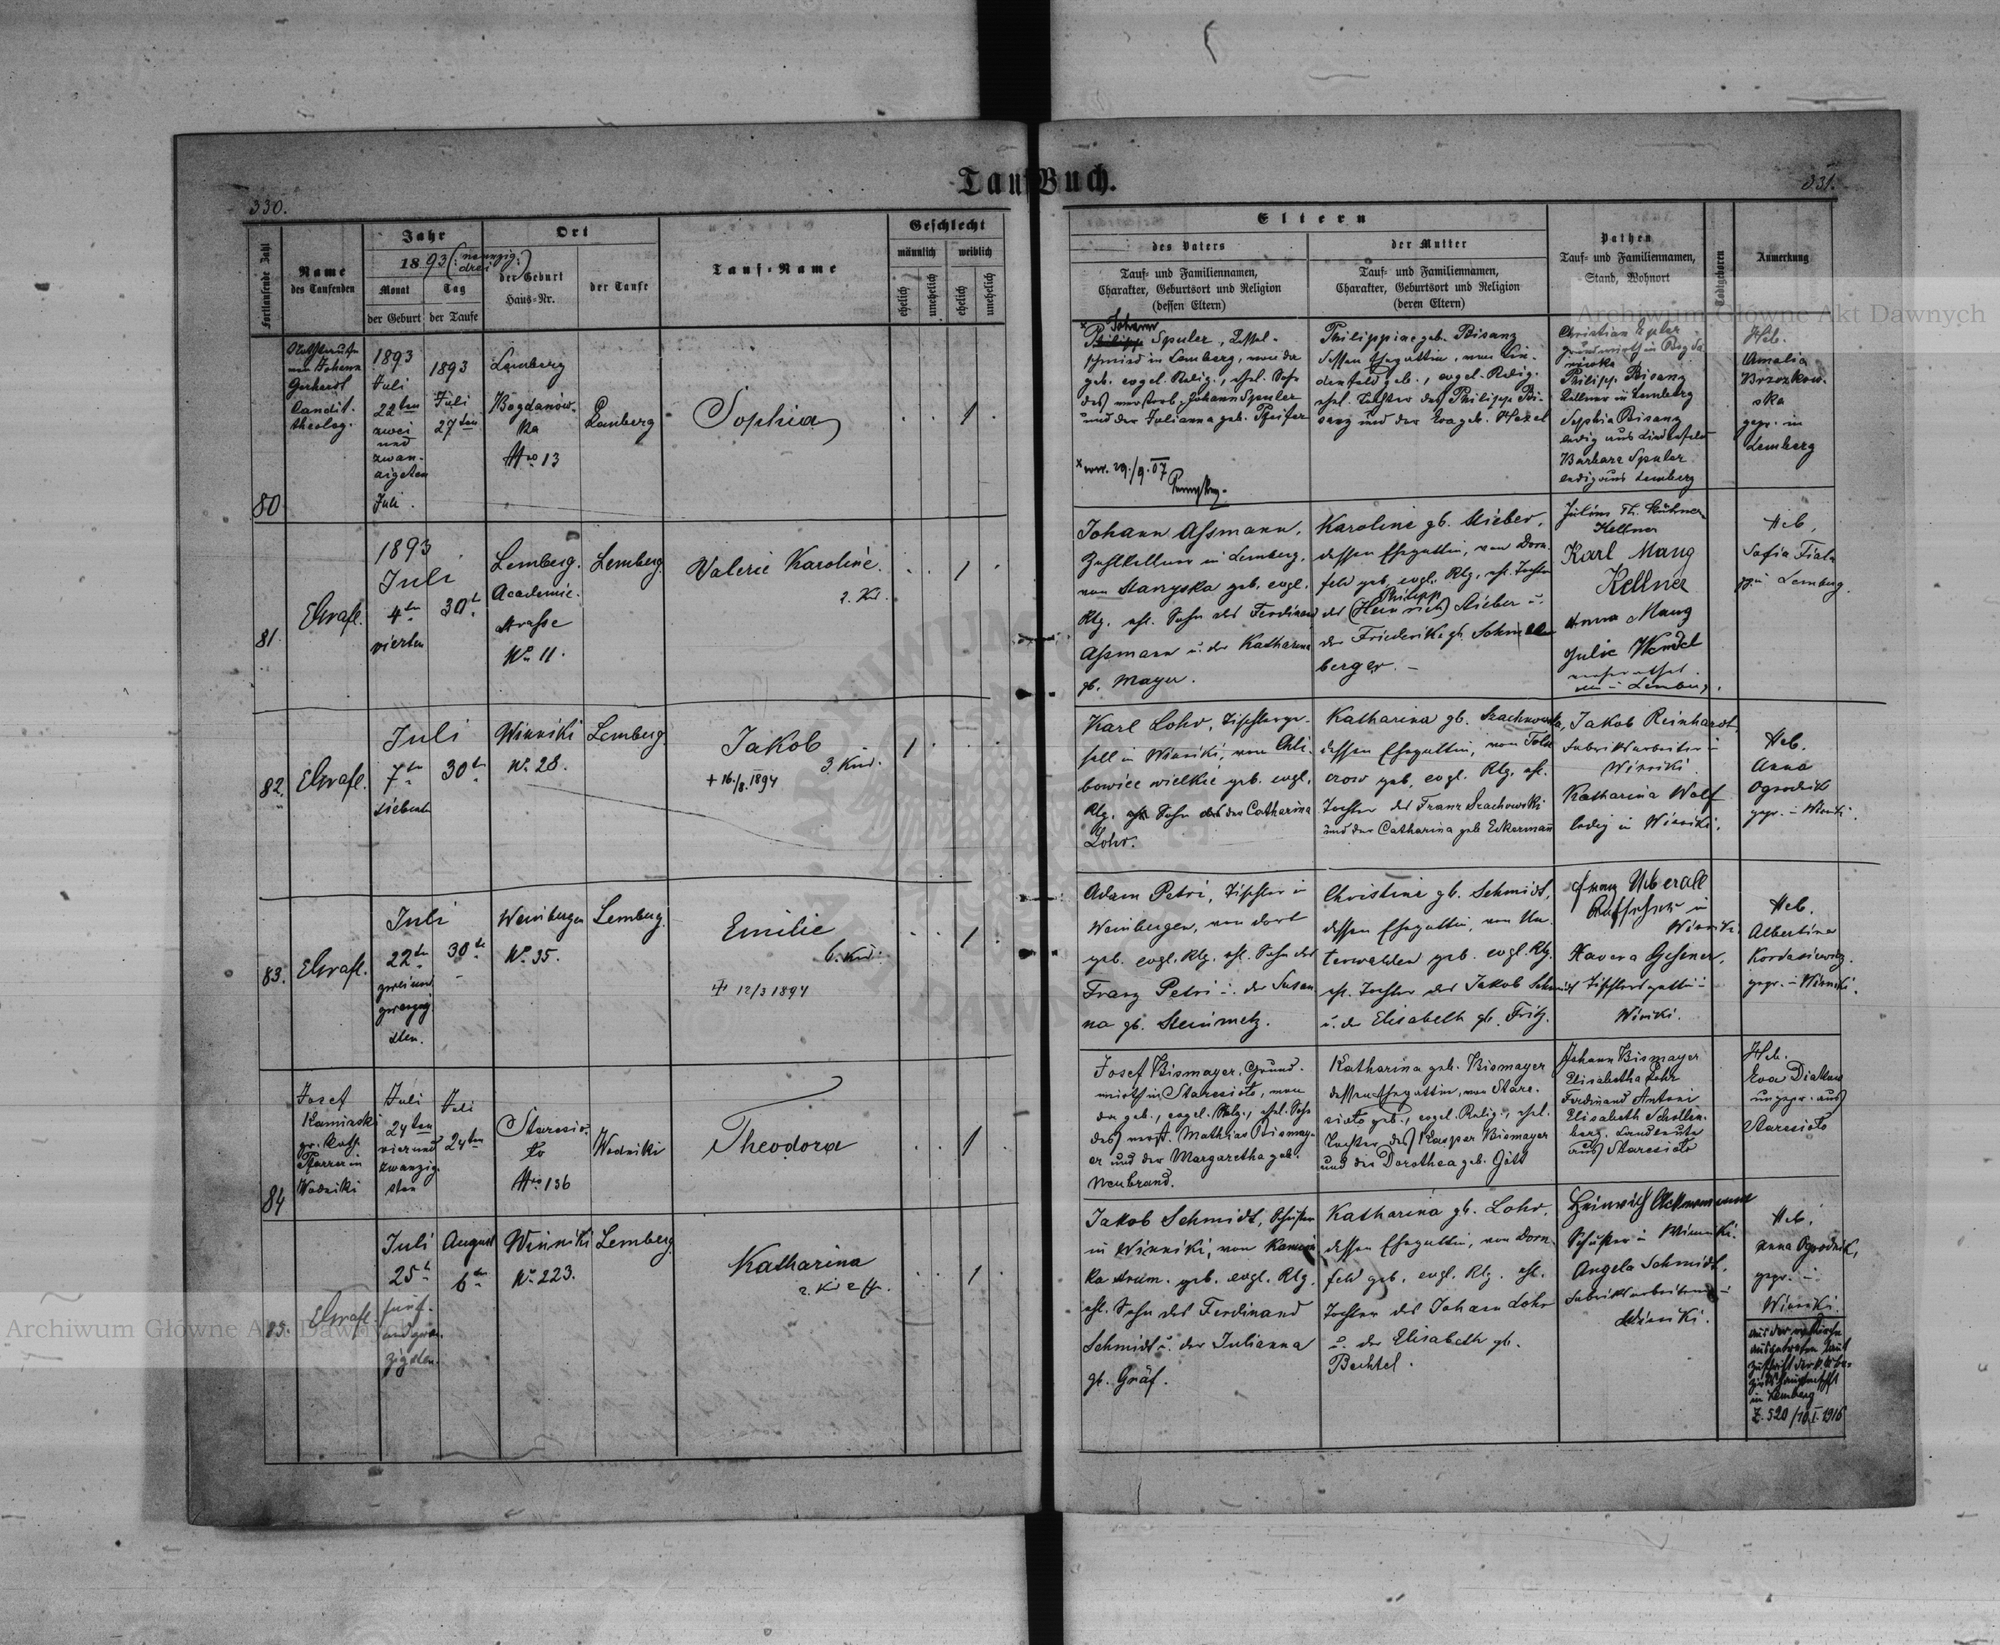 Tauf Buch.
330.
331.
Fortlaufende Zahl
Name
des Taufenden
Jahr
1893 (: neunzig
drei :)
Monat
Tag
der Geburt
der Taufe
Ort
der Geburt
Haus=Nr.
der Taufe
Tauf=Name
Geschlecht
männlich
weiblich
ehelich
unehelich
ehelich
unehelich
Eltern
des Vaters
Tauf= und Familiennamen,
Charakter, Geburtsort und Religion
(dessen Eltern)
der Mutter
Tauf= und Familiennamen,
Charakter, Geburtsort und Religion
(deren Eltern)
Pathen
Tauf= und Familiennamen,
Stand, Wohnort
Todtgeboren
Anmerkung
80
Johann
Gerhardt
Candit.
theolog.
1893
Juli
22ten
zwei
und
zwan-
zigsten
Juli.
1893
Juli
27ten
Lemberg
Bogdanow-
ka
Nro 13
Lemberg
Sophia
1
Johann
Philipp Spuler, Kessel-
schmied in Lemberg, von da
geb. evgel. Relig., ehel. Sohn
des verstorb. Johann Spuler
und der Julianna geb. Pfeifer
x corr. 29./9. 07
Philippine geb. Bisanz
dessen Ehegattin, von Lin-
denfeld geb., evgel. Relig.
ehel. Tochter des Philipp Bi-
sanz und der Eva geb. Hexel
Christian Spuler
Grundwirth in Bogda
nówka
Philipp Bisanz
Kellner in Lemberg
Sophia Bisanz
ledig aus Lindenfeld
Barbara Spuler
ledig aus Lemberg
Heb.
Amalia
Brzozkow-
ska
gepr. in
Lemberg
81.
1893
Juli
4ten
vierten
30t
Lemberg.
Academie-
strasse
No 11.
Lemberg.
Valerie Karoline.
2. Kd.
1
Johann Assmann,
Zahlkellner in Lemberg,
von Stanyska geb. evgl.
Rlg. ehl. Sohn des Ferdinand
Assmann u. der Katharina
gb. Mayer.
Karoline gb. Stieber,
dessen Ehegattin, von Dorn-
feld geb. evgl. Rlg. ehl. Tochter
Philipp
des (Heinrich) Stieber u.
der Friederike gb. Schmellen
berger. –
Kellner
Karl Mang
Kellner
Anna Mang
Julie Wendel
in Lemberg.
Heb.
Sofia Fiala
in Lemberg.
82.
Juli
7ten
siebent.
30ten
Winniki
No. 28.
Lemberg.
Jakob
3. Kind.
+ 16./8. 1894
1
Karl Lohr, Tischlerge-
sell in Winniki, von Chli-
bowice wielkie geb. evgl.
Rlg. Sohn der Catharina
Lohr.
Katharina gb. Szachowska,
dessen Ehegattin, von
geb. evgl. Rlg. ehl.
Tochter des Franz Szachowski
und der Catharina geb Eckermann
Jakob Reinhardt,
Fabriksarbeiter in
Winniki
Katharina Wolf
ledig in Winniki.
Heb.
Anna
Ogrodnik
gepr. in Winniki.
83.
Juli
22ten
zwei und
zwanzig
sten.
30te
Weinbergen
No. 35.
Lemberg.
Emilie
6. Kind.
+ 12/3 1894
1
Adam Petri, Tischler in
Weinbergen, von dort
geb. evgl. Rlg. ehl. Sohn des
Franz Petri u. der Susan
na gb. Steinmetz.
Christine gb. Schmidt,
dessen Ehegattin, von Un-
terwalden geb. evgl. Rlg.
ehl. Tochter des Jakob Schmidt
u. der Elisabeth gb. Fritz.
Franz Ueberall
Aufseher in
Winniki
Tischlersgattin in
Winniki.
Heb.
Albertina
gepr. in Winniki.
84
Josef
Kamiński
gr. kath.
Pfarrer in
Wodniki
Juli
24ten
vier und
zwanzig-
sten
Juli
24ten
Staresio-
ło
Nro 136
Wodniki
Theodora
1
Josef Bismayer, Grund-
wirth in Staresioło, von
da geb., evgel. Relg., ehel. Sohn
des verst. Mathias Bismay-
er und der Margaretha geb.
Neubrand.
Katharina geb. Bismayer
dessen Ehegattin, von Stare-
sioło geb., evgel. Relig., ehel.
Tochter des Kasper Bismayer
und der Dorothea geb. Gött
Johann Bismayer
Elisabetha Lohr
Ferdinand Antoni
Elisabeth Schollen-
berg. Landleute
aus Staresioło
Heb.
Eva Diakow
ungepr. aus
Staresioło
85.
Juli
25t
fünf-
und zwan-
zigsten.
August
6ten
Winniki
No. 223.
Lemberg.
Katharina
1
Jakob Schmidt, Schuster
in Winniki, von Kamion-
ka strum. geb. evgl. Rlg.
ehl. Sohn des Ferdinand
Schmidt u. der Julianna
gb. Gräf.
Katharina gb. Lohr,
dessen Ehegattin, von Dorn-
feld geb. evgl. Rlg. ehl.
Tochter des Johann Lohr
u. der Elisabeth gb.
Bechtel.
Heinrich Ackermann
Schuster in Winniki.
Angela Schmidt,
Fabriksarbeiterin in
Winniki.
Heb.
Anna Ogrodnik,
gepr. in
Winniki.
in Lemberg
Z. 520/10.I.1916
Archiwum Główne Akt Dawnych
Archiwum Główne Akt Dawnych